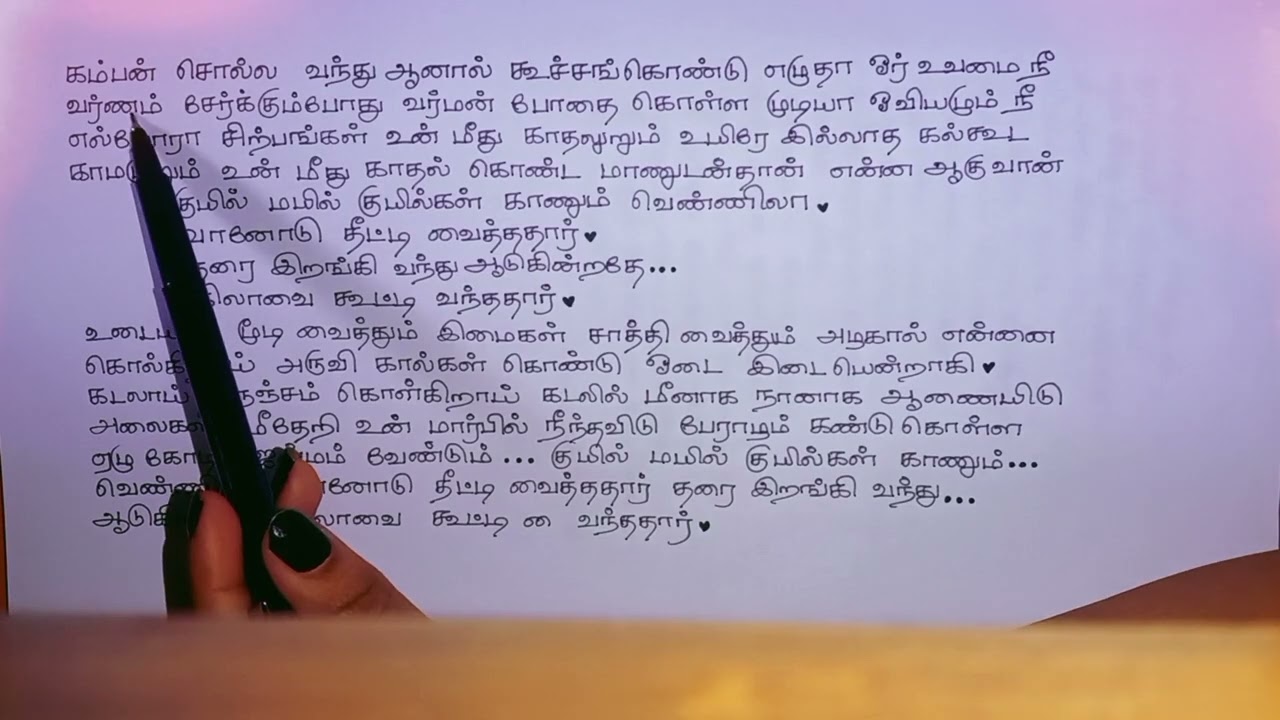 கம்பன் சொல்ல வந்து ஆனால் கூச்சங்கொண்டு எழுதா ஓர் உவமை நீ
வர்ணம் சேர்க்கும்போது வர்மன் போதை கொள்ள முடியா ஓவியமும் நீ
சிற்பங்கள் உன் மீது காதலுறும் உயிரே இல்லாத கல்கூட
உன் மீது காதல் கொண்ட மானுடன்தான் என்ன ஆகுவான்
குயில் மயில் குயில்கள் காணும் வெண்ணிலா ♥
வானோடு தீட்டி வைத்ததார் ♥
தரை இறங்கி வந்து ஆடுகின்றதே...
கூட்டி வந்ததார் ♥
மூடி வைத்தும் இமைகள் சாத்தி வைத்தும் அழகால் என்னை
அருவி கால்கள் கொண்டு ஓடை இடையென்றாகி ♥
கடலாய் நெஞ்சம் கொள்கிறாய் கடலில் மீனாக நானாக ஆணையிடு
மீதேறி உன் மார்பில் நீந்தவிடு பேராழம் கண்டு கொள்ள
ஏழு வேண்டும்... குயில் மயில் குயில்கள் காணும்...
தீட்டி வைத்ததார் தரை இறங்கி வந்து...
கூட்டி வந்ததார் ♥